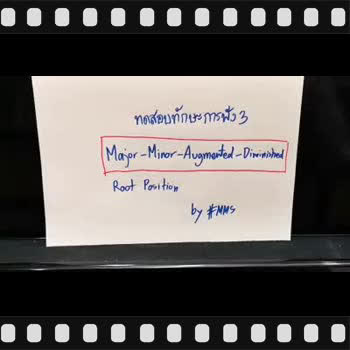 ทดสอบทักษะการฟัง 3
Major-Minor-Augmented-Diminished
Root Position
by #MMS